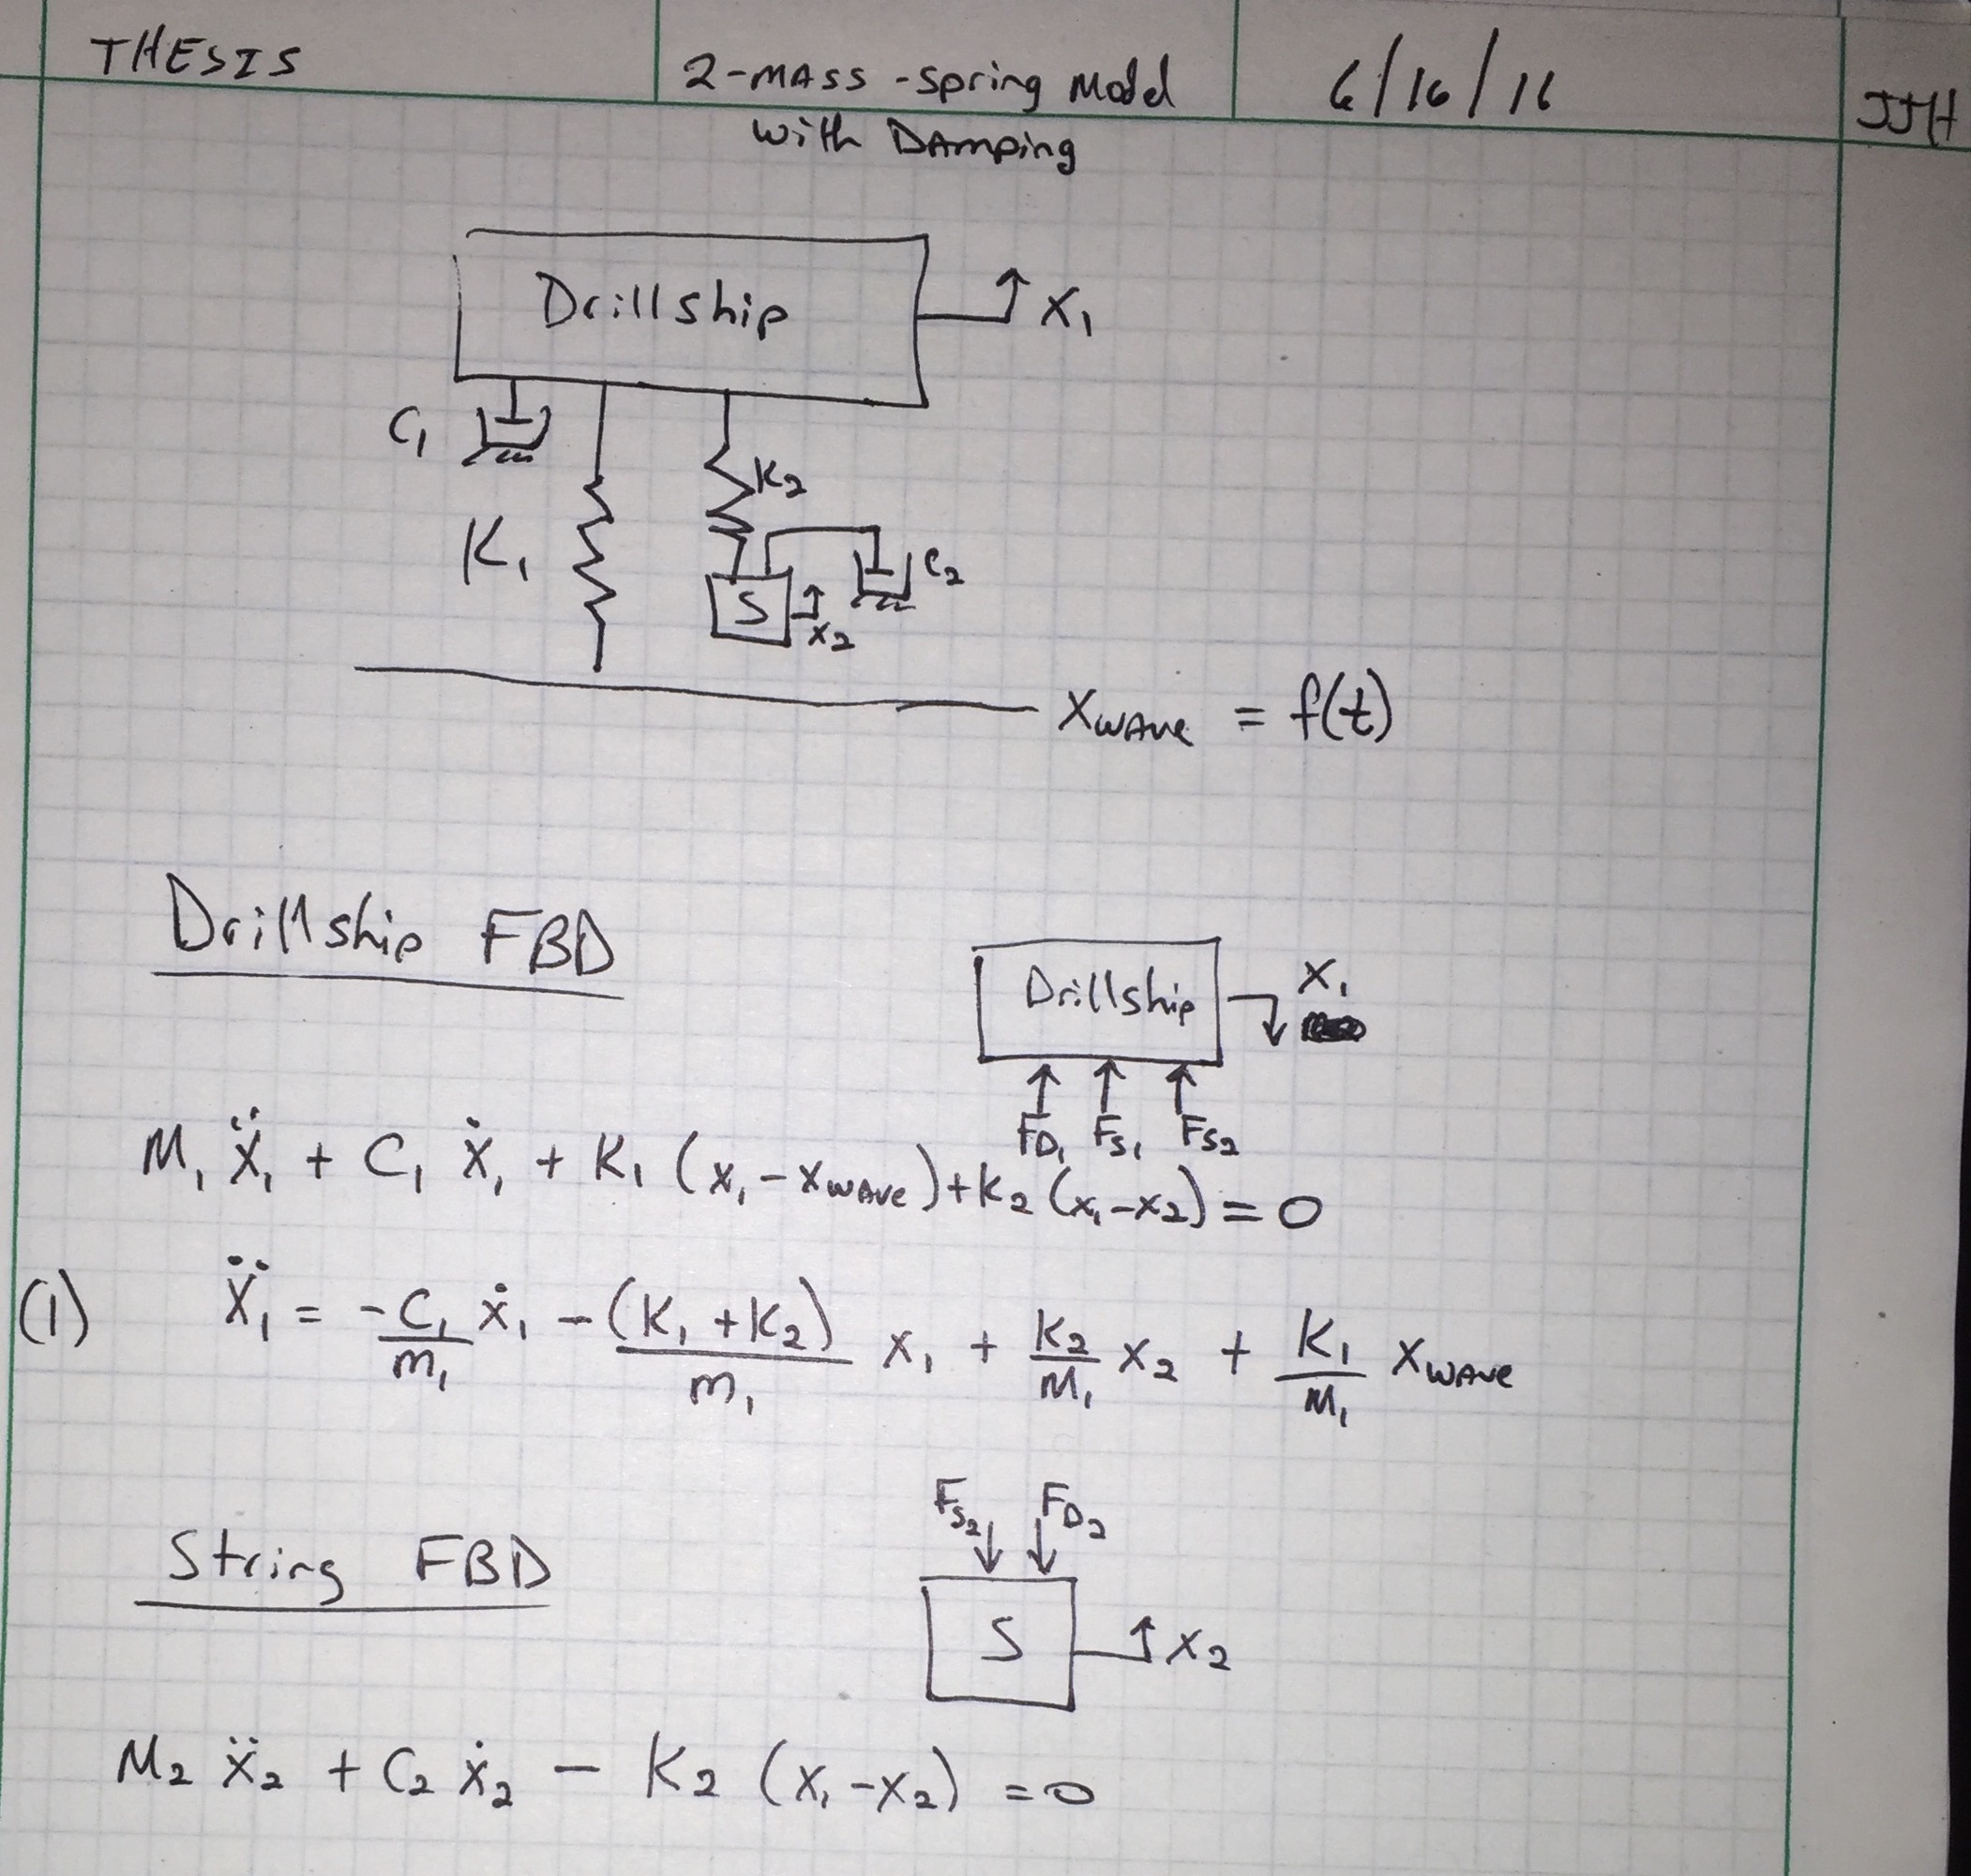 THESIS
2-MASS-Spring Model
with Damping
6/16/16
JJH
Drillship
X₁
C₁
K₁
K₂
C₂
S
X₂
Xwave = f(t)
Drillship FBD
Drillship
X₁
FD₁ Fs₁ Fs₂
M₁ ẍ₁ + C₁ ẋ₁ + K₁ (x₁ - xwave) + K₂ (x₁ - x₂) = 0
(1) ẍ₁ = -C₁/m₁ ẋ₁ - (K₁ + K₂)/m₁ x₁ + K₂/M₁ x₂ + K₁/M₁ xwave
Fs₂ FD₂
String FBD
S
X₂
M₂ ẍ₂ + C₂ ẋ₂ - K₂ (x₁ - x₂) = 0